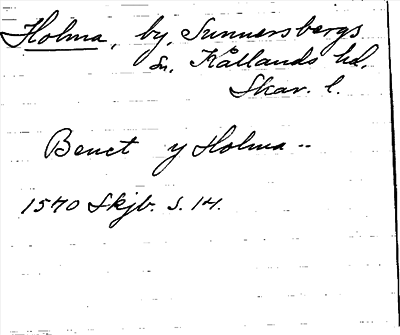 Holma, by, Sunnersbergs
sn, Kållands hd,
Skar. l.
Benct y Holma --
1570 Skjb. s. 14.